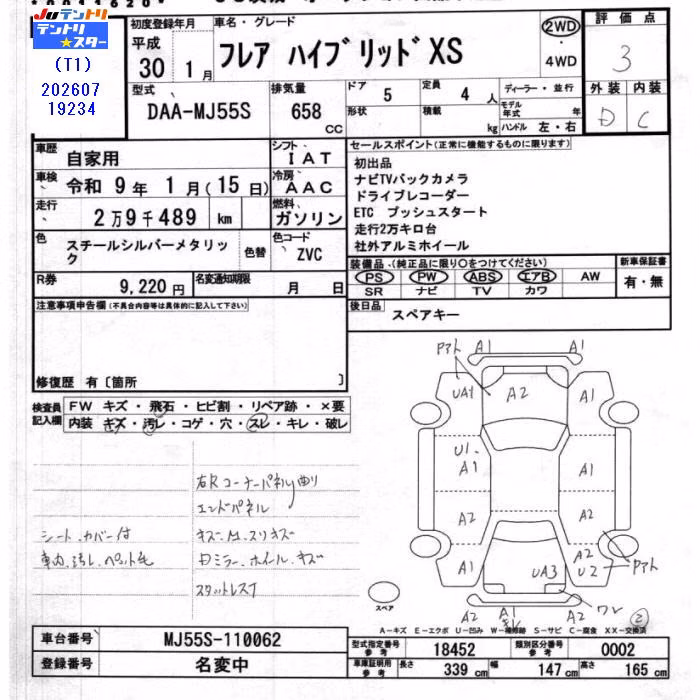 JUテントリ
テントリ★スター
(T1)
202607
19234
初度登録年月
平成
30 年 1 月
車名・グレード
フレア ハイブリッドXS
2WD
・
4WD
評価点
3
外装 内装
D C
型式
DAA-MJ55S
排気量
658
CC
ドア
5
形状
定員
4 人
積載
kg
ディーラー・並行
モデル年式 年
ハンドル 左・右
車歴
自家用
シフト
IAT
車検
令和 9 年 1 月(15 日)
冷房
AAC
走行
2万9千489 km
燃料
ガソリン
色
スチールシルバーメタリック
色替
色コード
ZVC
R券
9,220 円
名変通知期限
月 日
セールスポイント(正常に機能するものに限ります)
初出品
ナビTVバックカメラ
ドライブレコーダー
ETC プッシュスタート
走行2万キロ台
社外アルミホイール
装備品、(純正品に限り○をつけてください)
PS PW ABS エアB AW
SR ナビ TV カワ
新車保証書
有・無
後日品
スペアキー
注意事項申告欄(不具合内容等は具体的に記入して下さい)
修復歴 有〔箇所 〕
検査員記入欄
FW キズ・飛石・ヒビ割・リペア跡・×要
内装 キズ・汚レ・コゲ・穴・スレ・キレ・破レ
右Rコーナーパネル曲り
エンドパネル
シート、カバー付
キズ、M、スリキズ
車内、汚し、ペット毛
Dミラー、ホイール、キズ
スタットレスT
アアト A1 A1
UA1 A2 A1
U1、
A1 A1
A2 A2
A1 UA3 A2
U2 アアト
ワレ
A2 A1 A2
②
スペア
A-キズ E-エクボ U-凹み W-補修跡 S-サビ C-腐食 XX-交換済
車台番号
MJ55S-110062
登録番号
名変中
型式指定番号
参考
18452
類別区分番号
参考
0002
車庫証明用
参考
長さ
339 cm
幅
147 cm
高さ
165 cm